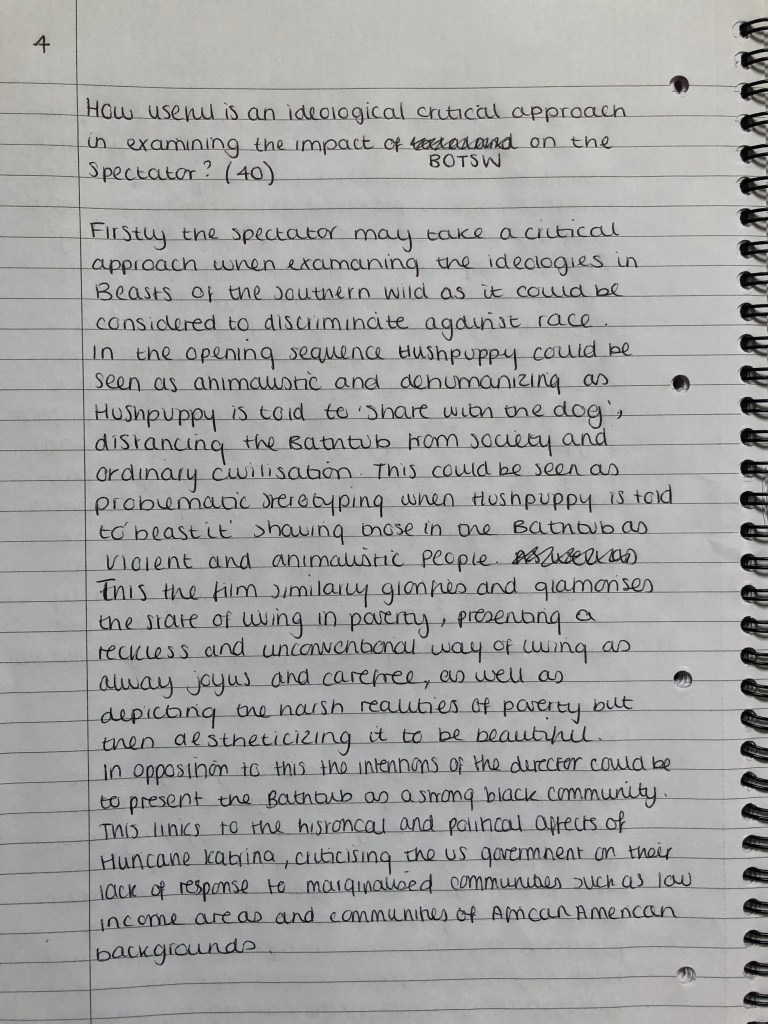 4
How useful is an ideological critical approach
in examining the impact of on the
BOTSW
Spectator? (40)
Firstly the spectator may take a critical
approach when examaning the ideologies in
Beasts of the Southern Wild as it could be
considered to discriminate against race.
In the opening sequence Hushpuppy could be
seen as animalistic and dehumanizing as
Hushpuppy is told to 'share with the dog',
distancing the Bathtub from society and
ordinary civilisation. This could be seen as
problematic steretyping when Hushpuppy is told
to 'beast it' showing those in the Bathtub as
violent and animalistic people.
This the film similarly glorifies and glamorises
the state of living in poverty, presenting a
reckless and unconventional way of living as
alway joyus and carefree, as well as
depicting the harsh realities of poverty but
then aestheticizing it to be beautiful.
In opposition to this the intentions of the director could be
to present the Bathtub as a strong black community.
This links to the historical and political affects of
Huricane Katrina, criticising the US government on their
lack of response to marginalised communities such as low
income areas and communities of African American
backgrounds.